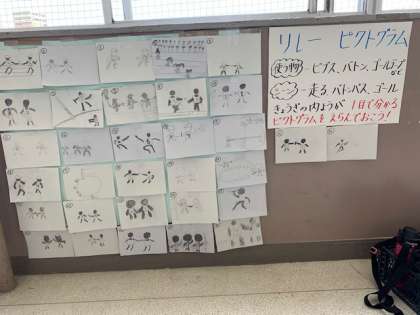 リレー ピクトグラム
使う物 ービブス、バトン、ゴールテープ
など
シーンー走る バトンパス、ゴール
きょうぎの内ようが 1目で分かる
ピクトグラムをえらんでおこう!